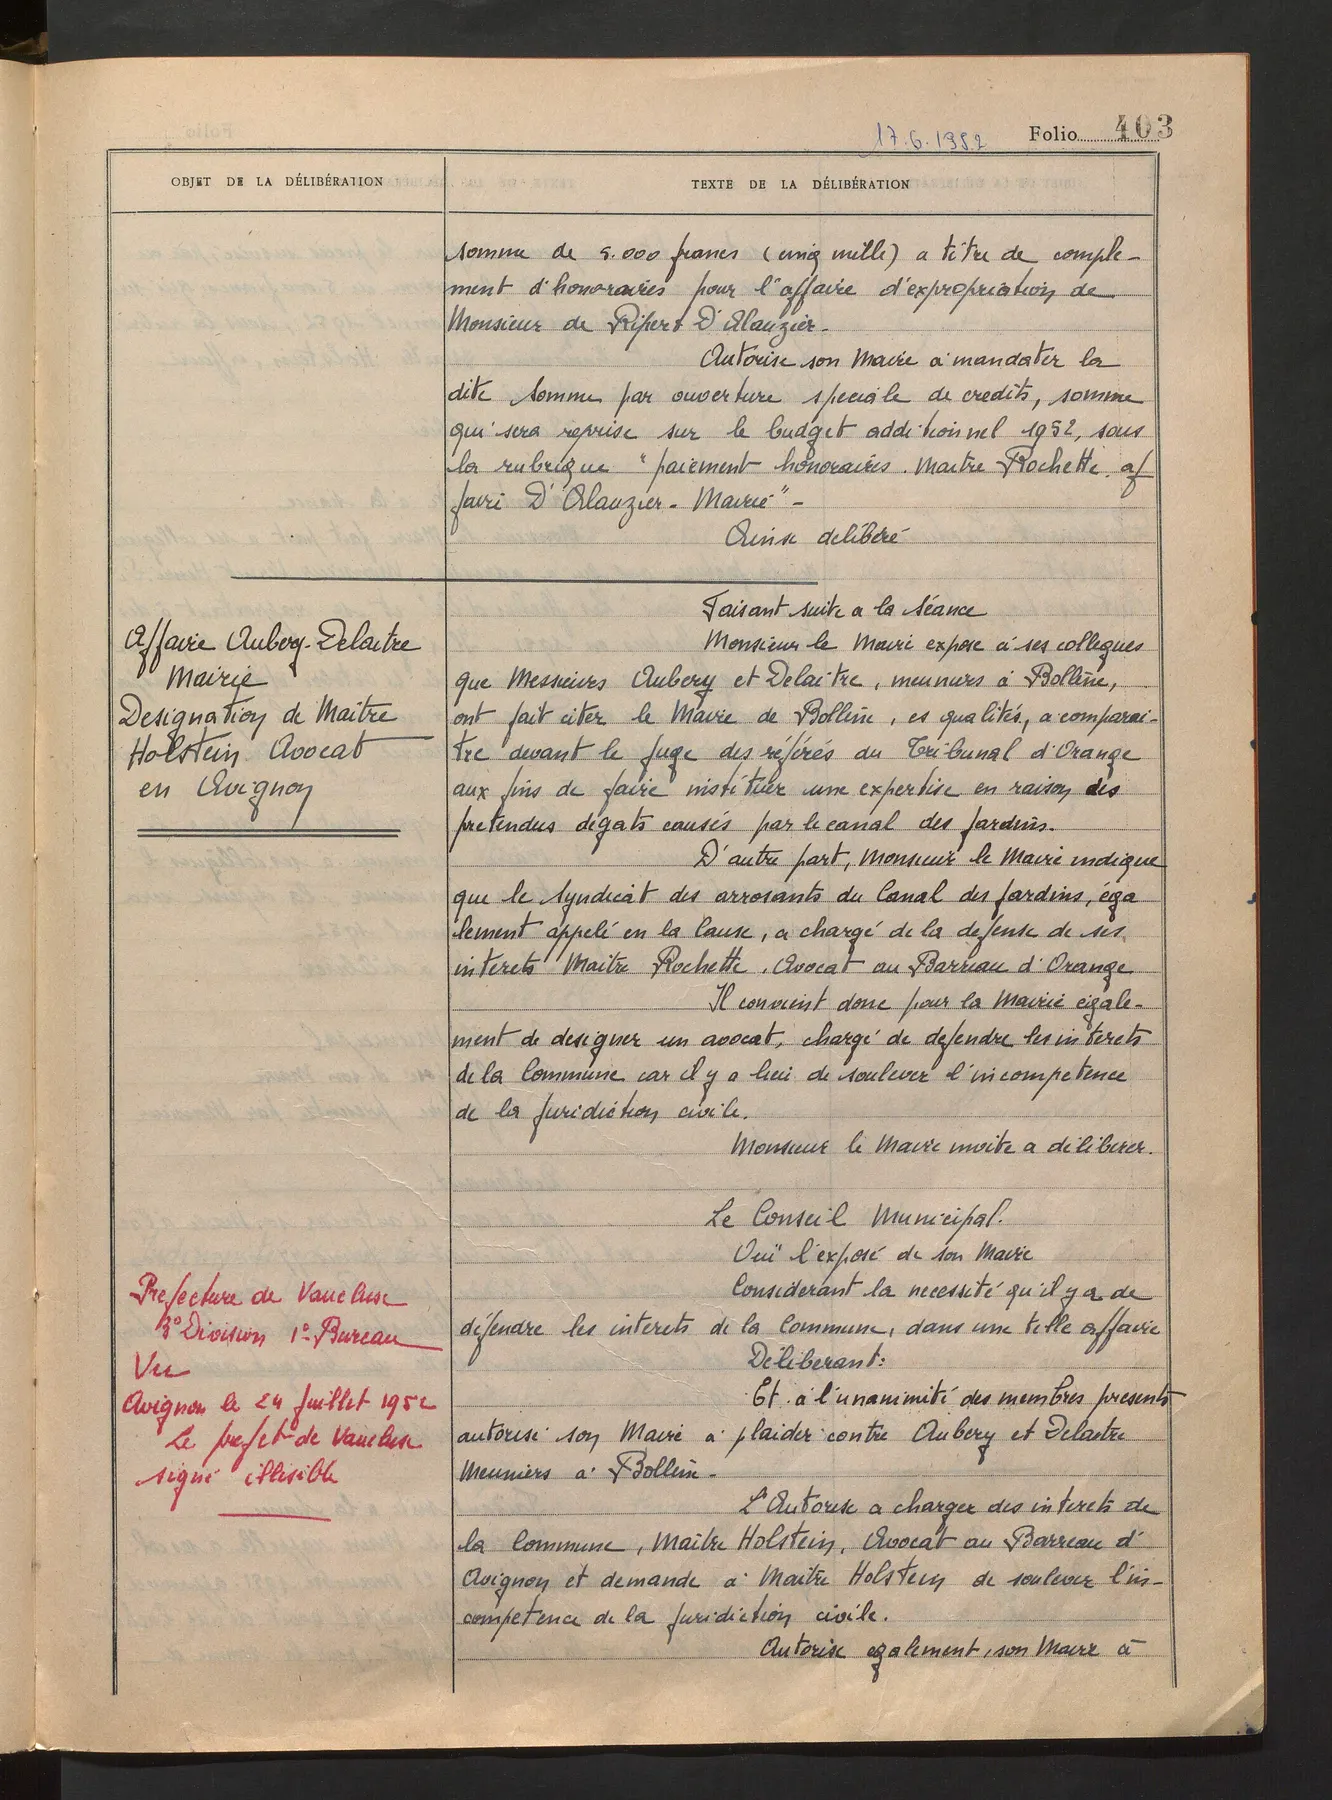 17.6.1952
Folio 403
OBJET DE LA DÉLIBÉRATION
TEXTE DE LA DÉLIBÉRATION
somme de 5.000 francs (cinq mille) a titre de comple-
ment d'honoraires pour l'affaire d'expropriation de
Monsieur de Ripert D'Alauzier-
Autorise son Maire a mandater la
dite somme par ouverture speciale de credits, somme
qui sera reprise sur le budget additionnel 1952, sous
la rubrique "paiement honoraires. Maitre Rochette. af
faire D'Alauzier- Mairie"-
Ainsi delibéré
Affaire Aubery-Delaitre
Mairie
Designation de Maitre
Holstein Avocat
en Avignon
Faisant suite a la séance
Monsieur le Maire expose à ses collegues
que Messieurs Aubery et Delaitre, meuniers à Bollène,
ont fait citer le Maire de Bollène, es qualités, a comparai-
tre devant le Juge des référés du Tribunal d'Orange
aux fins de faire instituer une expertise en raison des
pretendus dégats causés par le canal des Jardins.
D'autre part, Monsieur le Maire indique
que le Syndicat des arrosants du Canal des Jardins, éga
lement appelé en la Cause, a chargé de la defense de ses
interets Maitre Rochette, Avocat au Barreau d'Orange
Il convient donc pour la Mairie egale-
ment de designer un avocat, chargé de defendre les interets
de la Commune car il y a lieu de soulever l'incompetence
de la Juridiction civile.
Monsieur le Maire invite a déliberer.
Le Conseil Municipal.
Ouï l'exposé de son Maire
Considerant la necessité qu'il y a de
défendre les interets de la Commune, dans une telle affaire
Déliberant:
Et à l'unanimité des membres presents
autorise son Maire a plaider contre Aubery et Delaitre
Meuniers à Bollène-
L'Autorise a charger des interets de
la Commune, Maitre Holstein, Avocat au Barreau d'
Avignon et demande à Maitre Holstein de soulever l'in-
competence de la Juridiction civile.
Autorise egalement, son Maire à
Prefecture de Vaucluse
3° Division 1° Bureau
Vu
Avignon le 24 Juillet 1952
Le prefet de Vaucluse
signé illisible